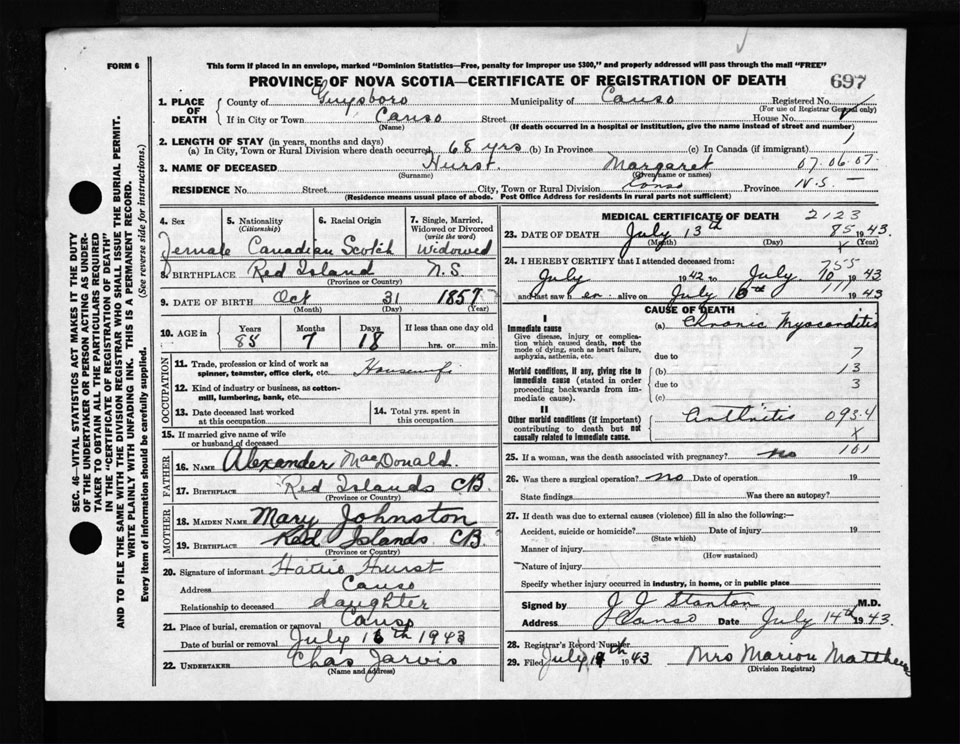 FORM 6
This form if placed in an envelope, marked "Dominion Statistics—Free, penalty for improper use $300," and properly addressed will pass through the mail "FREE"
PROVINCE OF NOVA SCOTIA—CERTIFICATE OF REGISTRATION OF DEATH
697
1. PLACE OF DEATH
County of Guysboro Municipality of Canso Registered No.
(For use of Registrar General only)
If in City or Town Canso Street House No.
(Name) (If death occurred in a hospital or institution, give the name instead of street and number)
2. LENGTH OF STAY (in years, months and days)
(a) In City, Town or Rural Division where death occurred 68 yrs (b) In Province (c) In Canada (if immigrant)
3. NAME OF DECEASED Hurst. Margaret 07.06.07.
(Surname) (Given name or names)
RESIDENCE No. Street City, Town or Rural Division Canso Province N.S. —
(Residence means usual place of abode. Post Office Address for residents in rural parts not sufficient)
4. Sex 5. Nationality 6. Racial Origin 7. Single, Married,
(Citizenship) Widowed or Divorced
(write the word)
Female Canadian Scotch Widowed
8. BIRTHPLACE Red Island N.S.
(Province or Country)
9. DATE OF BIRTH Oct 31 1857
(Month) (Day) (Year)
10. AGE in Years Months Days If less than one day old
85 7 18 hrs. or min.
OCCUPATION
11. Trade, profession or kind of work as
spinner, teamster, office clerk, etc. Housewife
12. Kind of industry or business, as cotton-
mill, lumbering, bank, etc.
13. Date deceased last worked
at this occupation
14. Total yrs. spent in
this occupation
15. If married give name of wife
or husband of deceased
FATHER
16. NAME Alexander MacDonald.
17. BIRTHPLACE Red Islands CB.
(Province or Country)
MOTHER
18. MAIDEN NAME Mary Johnston
19. BIRTHPLACE Red Islands CB.
(Province or Country)
20. Signature of informant Hattie Hurst
Address Canso
Relationship to deceased daughter
21. Place of burial, cremation or removal Canso
Date of burial or removal July 16th 1943
22. UNDERTAKER Chas Jarvis
(Name and address)
MEDICAL CERTIFICATE OF DEATH 2123
23. DATE OF DEATH July 13th 85 1943.
(Month) (Day) (Year)
X
24. I HEREBY CERTIFY that I attended deceased from:
755
July 1942 to July 10 1943
and last saw her alive on July 10th 111 1943
CAUSE OF DEATH
I
Immediate cause (a) Chronic Myocarditis
Give disease, injury or complica-
tion which caused death, not the
mode of dying, such as heart failure,
asphyxia, asthenia, etc.
due to 7
Morbid conditions, if any, giving rise to (b) 13
immediate cause (stated in order
proceeding backwards from im-
mediate cause).
due to 3
(c)
II
Other morbid conditions (if important)
contributing to death but not
causally related to immediate cause.
Arthritis 093.4
X
25. If a woman, was the death associated with pregnancy? no 101
26. Was there a surgical operation? no Date of operation 19
State findings Was there an autopsy?
27. If death was due to external causes (violence) fill in also the following:—
Accident, suicide or homicide? Date of injury 19
(State which)
Manner of injury
(How sustained)
Nature of injury
Specify whether injury occurred in industry, in home, or in public place
Signed by J J Stanton M.D.
Address Canso Date July 14th 1943.
28. Registrar's Record Number
29. Filed July 19th 1943 Mrs Marion Matthews
(Division Registrar)
SEC. 46—VITAL STATISTICS ACT MAKES IT THE DUTY
OF THE UNDERTAKER OR PERSON ACTING AS UNDER-
TAKER TO OBTAIN ALL THE PARTICULARS REQUIRED
IN THE "CERTIFICATE OF REGISTRATION OF DEATH"
AND TO FILE THE SAME WITH THE DIVISION REGISTRAR WHO SHALL ISSUE THE BURIAL PERMIT.
WRITE PLAINLY WITH UNFADING INK. THIS IS A PERMANENT RECORD.
Every item of information should be carefully supplied. (See reverse side for instructions.)